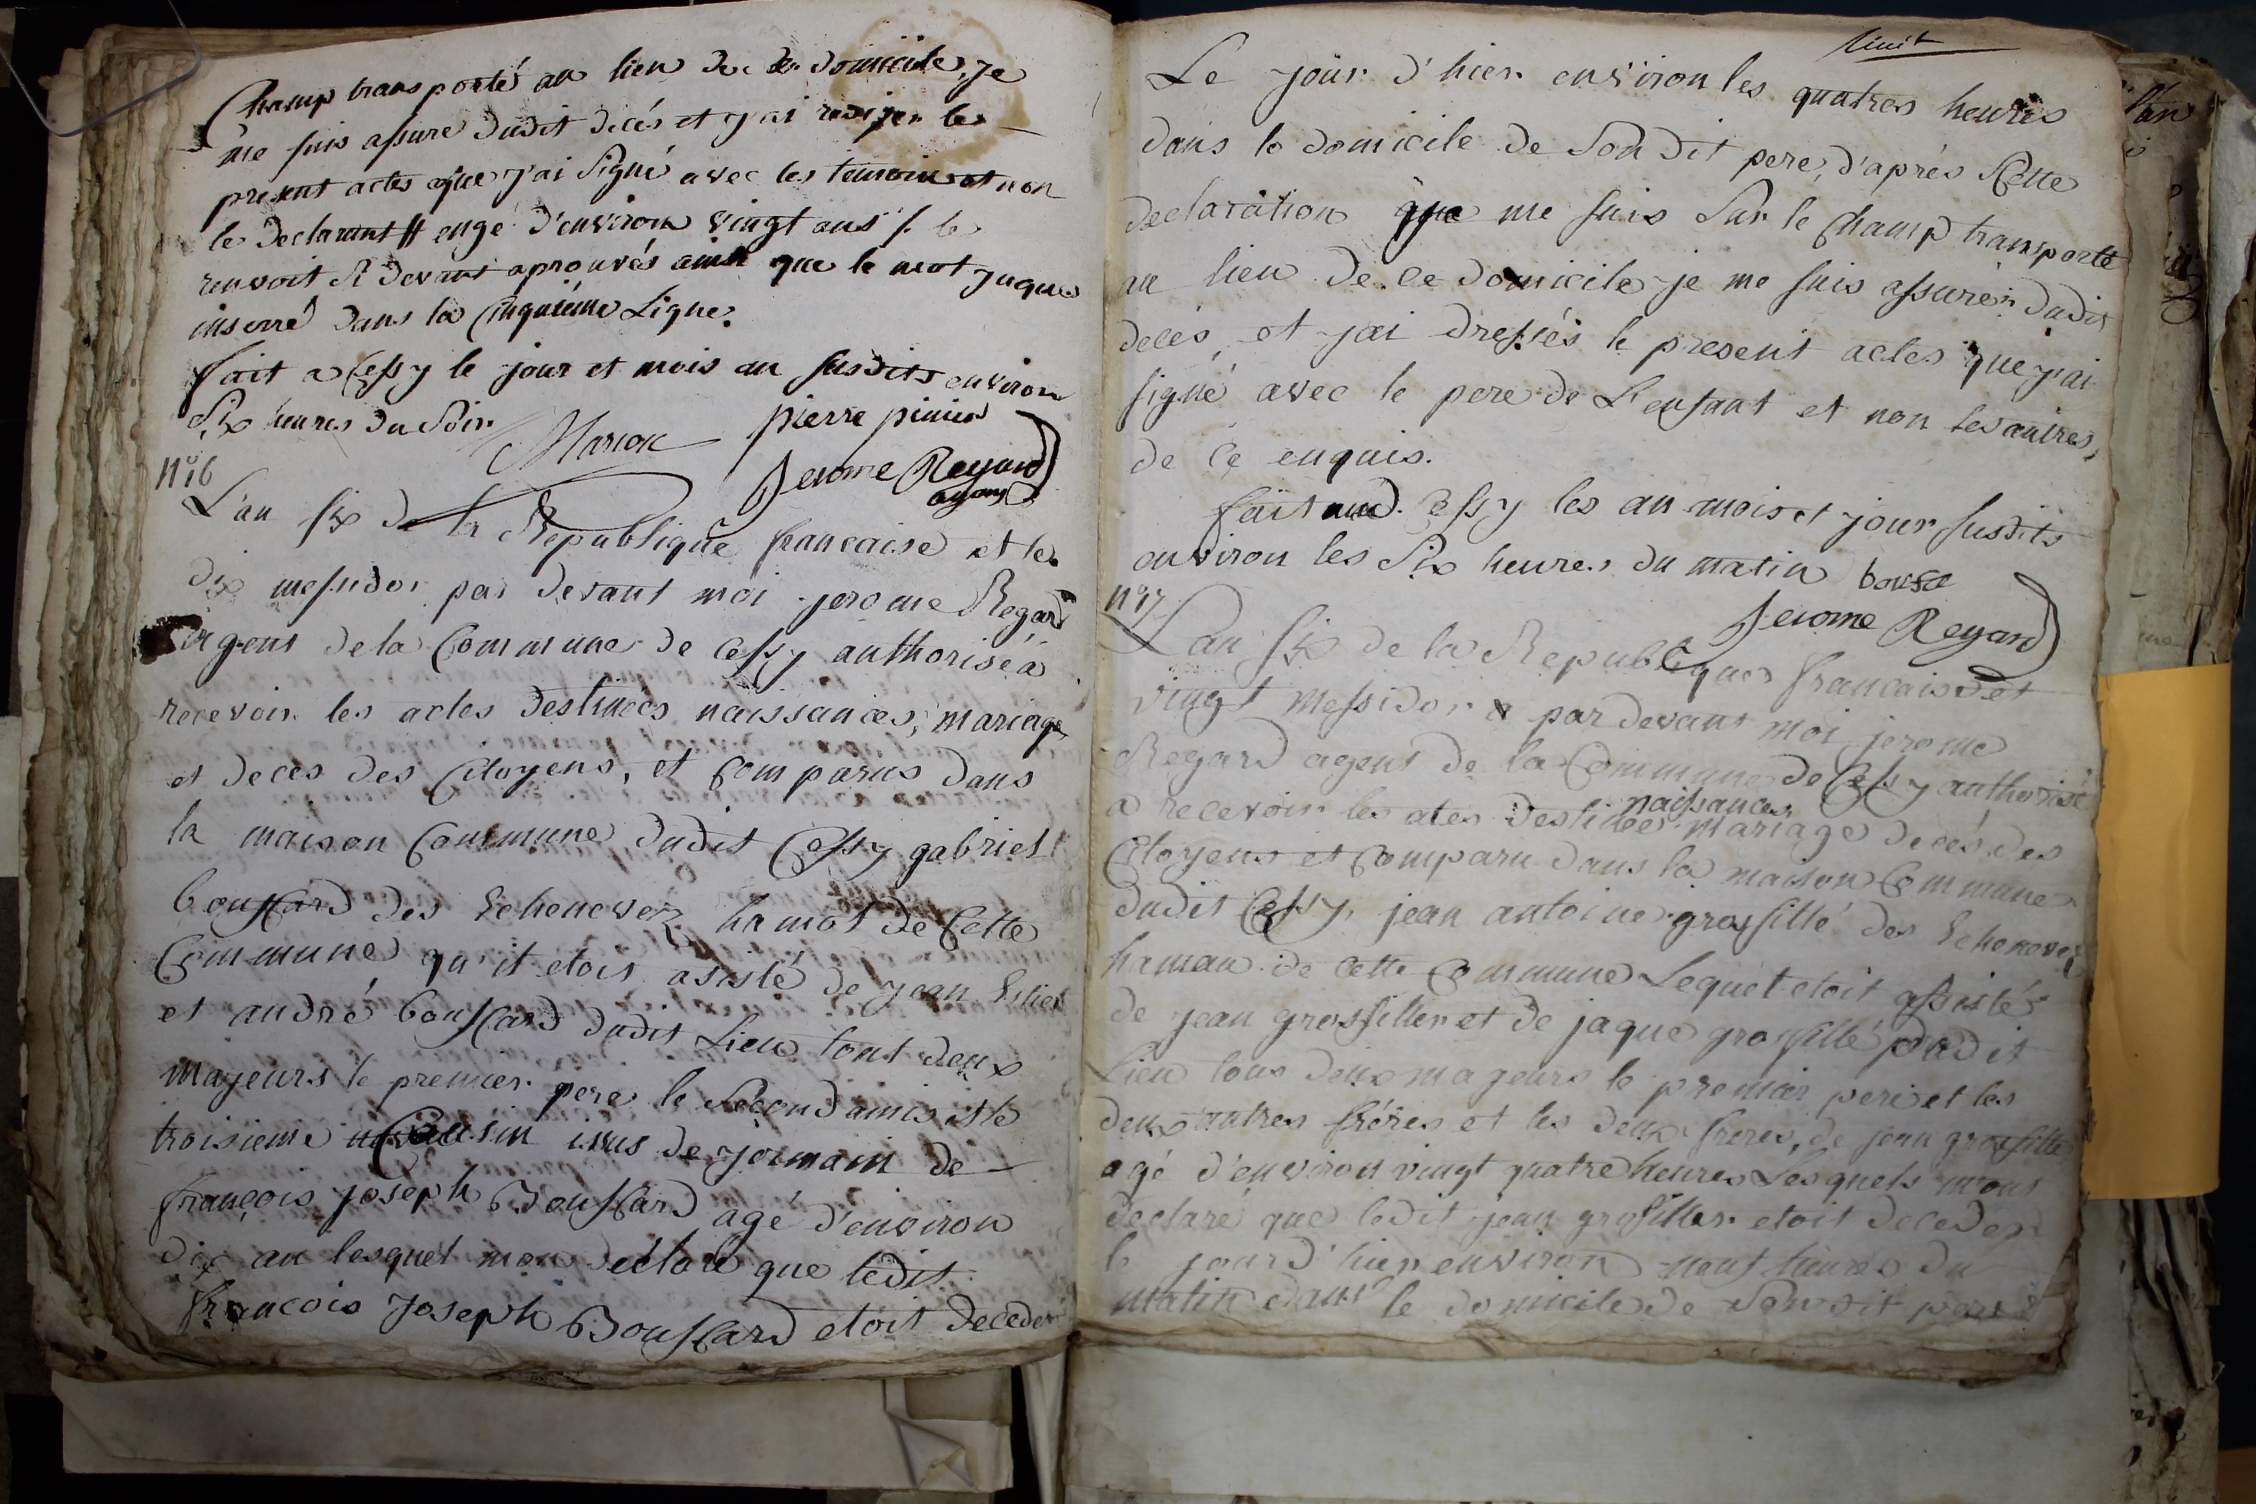 Champ transporté au lieu de ce domicile, je
me suis assure dudit décés et y ai rediger les
present actes que j'ai Signé avec les temoins et non
le declarant # enge d'environ vingt ans /. le
renvoit si devant aprouvés ainsi que le mot juque
inserré dans la Cinquiéme Ligne.
fait a Cessy le jour et mois an susdits environ
Six heures du Soir
Marion pierre pinier
Jerome Regard
agent
N° 16
L'an six de la Republique francaise et le
dix messidor par devant moi jerome Regard
agent de la Commune de Cessy authorisé a
recevoir les actes destinées naissances, mariage
et deces des Citoyens, et Comparus dans
la maison Commune dudit Cessy gabriel
bouscard des Echenevez hamot de Cette
Commune qu'it etois asisté de jean
et andré bouscard dudit Lieu tout deux
majeurs le premier pere le Second amis et le
troisieme Cousin issus de jermain de
françois joseph Bouscard agé d'environ
dix an lesquel mon déclaré que ledit
francois Joseph Bouscard etoit Deceder
huit
Le jour d'hier environ les quatres heures
dans le domicile de Son dit pere, d'aprés Cette
declaration que me suis Sur le Champ transporté
au lieu de ce domicile je me suis assurér dudit
decés, et jai dressés le present actes que j'ai
signé avec le pere de L'enfant et non les autres,
de ce enquis.
fait aud. Cessy les an mois et jour susdits
environ les Six heures du matin
Jerome Regard
N° 17
L'an six de la Republiques francaise et
vingt Messidor par devant moi jerome
Regard agent de la Commune de Cessy authorisé
naissances
a recevoir les actes Destinée mariage decés des
Citoyens et Comparu dans la maison Commune
dudit Cessy, jean antoine grosfillé des Echenevez
hamau de cette Commune Lequel etoit assistér
de jean grosfiller et de jaque grosfillé dudit
Lieu tous deux majeurs le premier pere et les
deux autres fréres et les deux freres, de jean grosfille
agé d'environ vingt quatre heures Lesquels m'ont
declaré que ledit jean grosfiller etoit deceder
le jour d'hier environ neuf heures du
matin dans le domicile de Son dit pere